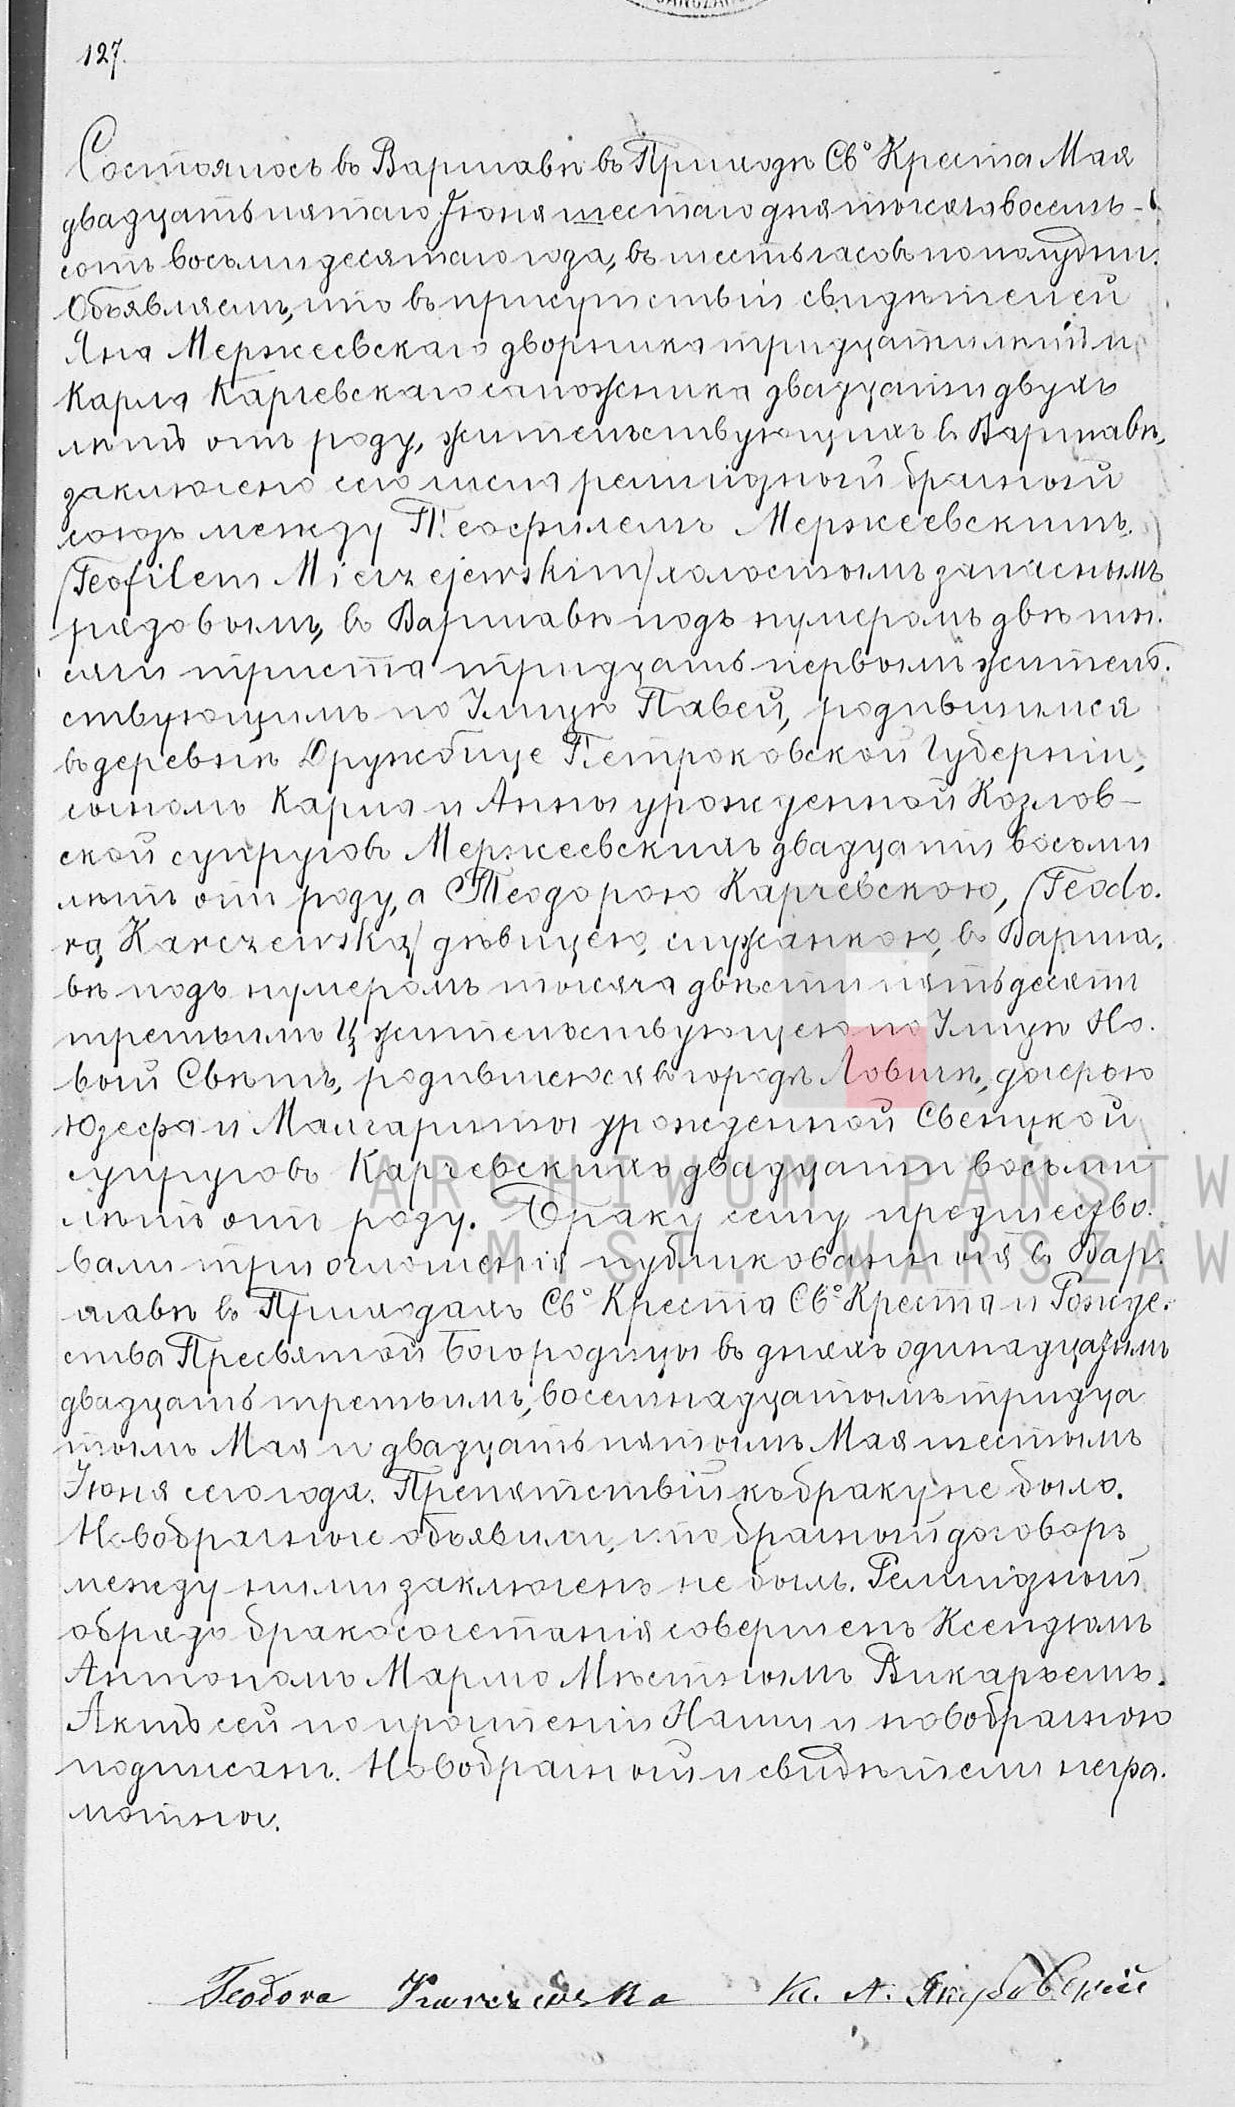 127.
Состоялось въ Варшавѣ въ Приходѣ Св° Креста Мая
двадцать пятаго Іюня шестаго дня тысяча восемь-
сотъ восьмидесятаго года, въ шесть часовъ пополудни.
Объявляемъ, что въ присутствіи свидѣтелей
Яна Мержеевскаго дворника тридцати лѣтъ и
Карла Карчевскаго сапожника двадцати двухъ
лѣтъ отъ роду, жительствующихъ въ Варшавѣ,
заключено сего числа религіозный брачный
союзъ между Теофилемъ Мержеевскимъ,
/Teofilem Mierzejewskim/ холостымъ запаснымъ
рядовымъ, въ Варшавѣ подъ нумеромъ двѣ ты.
сячи триста тридцать первымъ житель.
ствующимъ по Улицѣ Павей, родившимся
въ деревнѣ Дружбице Петроковской Губерніи,
сыномъ Карла и Анны урожденной Козлов-
ской супруговъ Мержеевскихъ двадцати восьми
лѣтъ отъ роду, а Теодорою Карчевскою, /Teodo.
rą Karczewską/ дѣвицею, служанкою, въ Варша.
вѣ подъ нумеромъ тысяча двѣсти пятьдесятъ
третьимъ Ц жительствующею по Улицѣ Но.
вый Свѣтъ, родившеюся въ городѣ Ловичѣ, дочерью
Юзефа и Малгариты урожденной Свенцкой
супруговъ Карчевскихъ двадцати восьми
лѣтъ отъ роду. Браку сему предшество.
вали три оглошенія публикованныя въ Вар.
шавѣ въ Приходахъ Св° Креста Св° Креста и Рожде.
ства Пресвятой Богородицы въ дняхъ одинадцатымъ
двадцать третьимъ, восемнадцатымъ тридца
тымъ Мая и двадцать пятымъ Мая шестымъ
Іюня сего года. Препятствій къ браку не было.
Новобрачные объявили, что брачный договоръ
между ними заключенъ не былъ. Религіозный
обрядъ бракосочетанія совершенъ Ксендзомъ
Антономъ Мармо Мѣстнымъ Викарьемъ.
Актъ сей по прочтеніи Нами и новобрачною
подписанъ. Новобрачный и свидѣтели негра.
мотны.
Teodora Karczewska Кс. А. Якубовскій
ARCHIWUM PAŃSTW
M.ST. WARSZAW